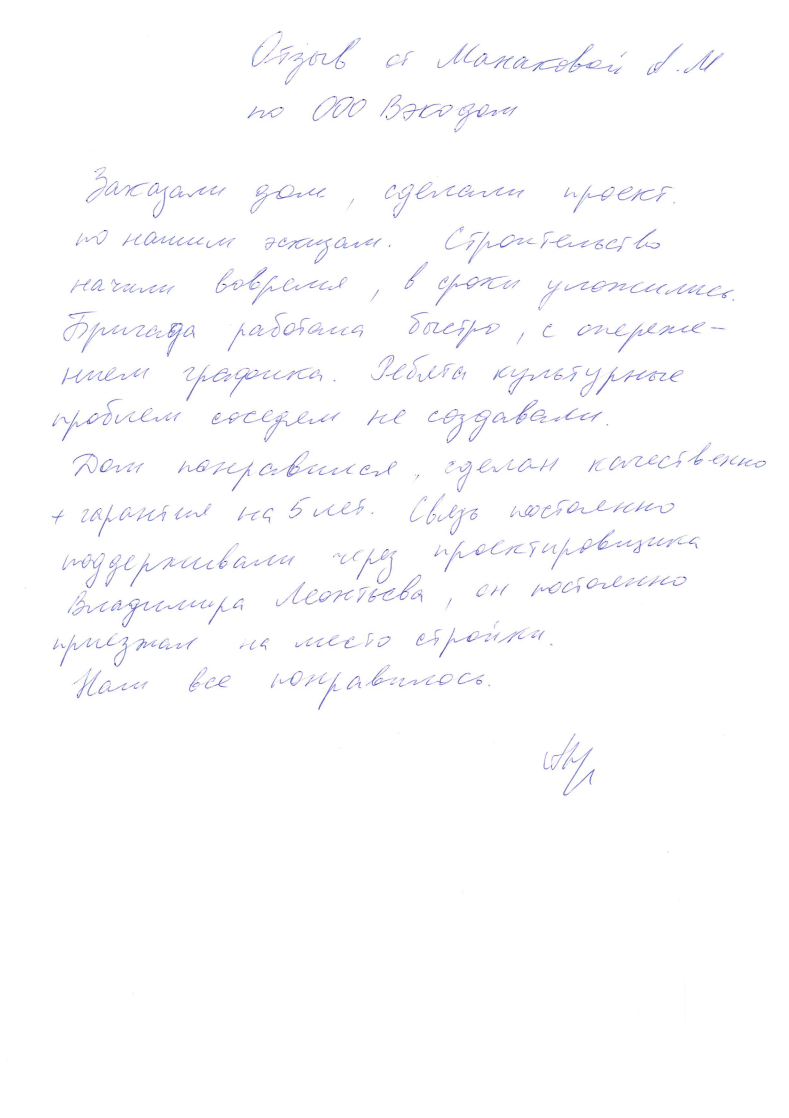 Отзыв от Манаковой А.М
по ООО Вэкодом
Заказали дом, сделали проект.
по нашим эскизам. Строительство
начали вовремя, в сроки уложились.
Бригада работала быстро, с опереже-
нием графика. Ребята культурные
проблем соседям не создавали.
Дом понравился, сделан качественно
+ гарантия на 5 лет. Связь постоянно
поддерживали через проектировщика
Владимира Леонтьева, он постоянно
приезжал на место стройки.
Нам все понравилось.